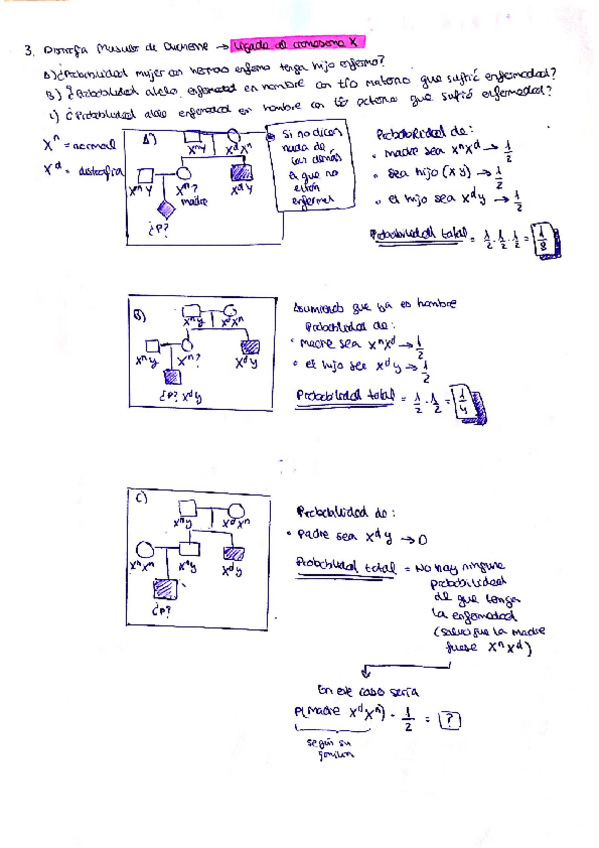 3. Distrofia Muscular de Duchenne → Ligada al cromosoma X
A) ¿Probabilidad mujer con hermano enfermo tenga hijo enfermo?
B) ¿Probabilidad alelo enfermedad en hombre con tío materno que sufrió enfermedad?
C) ¿Probabilidad alelo enfermedad en hombre con tío paterno que sufrió enfermedad?
Xⁿ = normal
Xᵈ = distrofia
A)
XⁿY XᵈXⁿ
XⁿY Xⁿ? XᵈY
madre
¿P?
Si no dicen
nada de
los demás
es que no
están
enfermos
Probabilidad de:
• madre sea XⁿXᵈ → 1/2
• sea hijo (XY) → 1/2
• el hijo sea XᵈY → 1/2
Probabilidad total = 1/2 · 1/2 · 1/2 = 1/8
B)
XⁿY XᵈXⁿ
XⁿY Xⁿ? XᵈY
¿P? XᵈY
Asumiendo que ya es hombre
Probabilidad de:
• madre sea XⁿXᵈ → 1/2
• el hijo sea XᵈY → 1/2
Probabilidad total = 1/2 · 1/2 = 1/4
C)
XⁿY XᵈXⁿ
XⁿXⁿ XⁿY XᵈY
¿P?
Probabilidad de:
• Padre sea XᵈY → 0
Probabilidad total = No hay ninguna
probabilidad
de que tenga
la enfermedad
(salvo que la madre
fuese XⁿXᵈ)
En ese caso sería
P(Madre XᵈXⁿ) · 1/2 = ?
según su